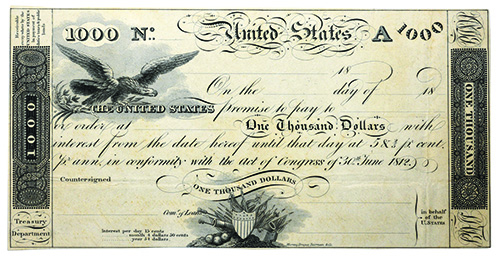 1000 Nº. United States A 1000
Receivable
every where by the
UNITED STATES
in
public
funds
18
On the day of 18
THE UNITED STATES promise to pay to
or order at One Thousand Dollars with
interest from the date hereof until that day at 5 & 2/5 pr. cent.
pr. ann. in conformity with the act of Congress of 30th June 1812.
Countersigned
ONE THOUSAND DOLLARS
Comr. of Loans
Interest per day 15 cents
month 4 dollars 50 cents
year 54 dollars.
Treasury
Department
in behalf
of the
U. STATES
1000
ONE THOUSAND